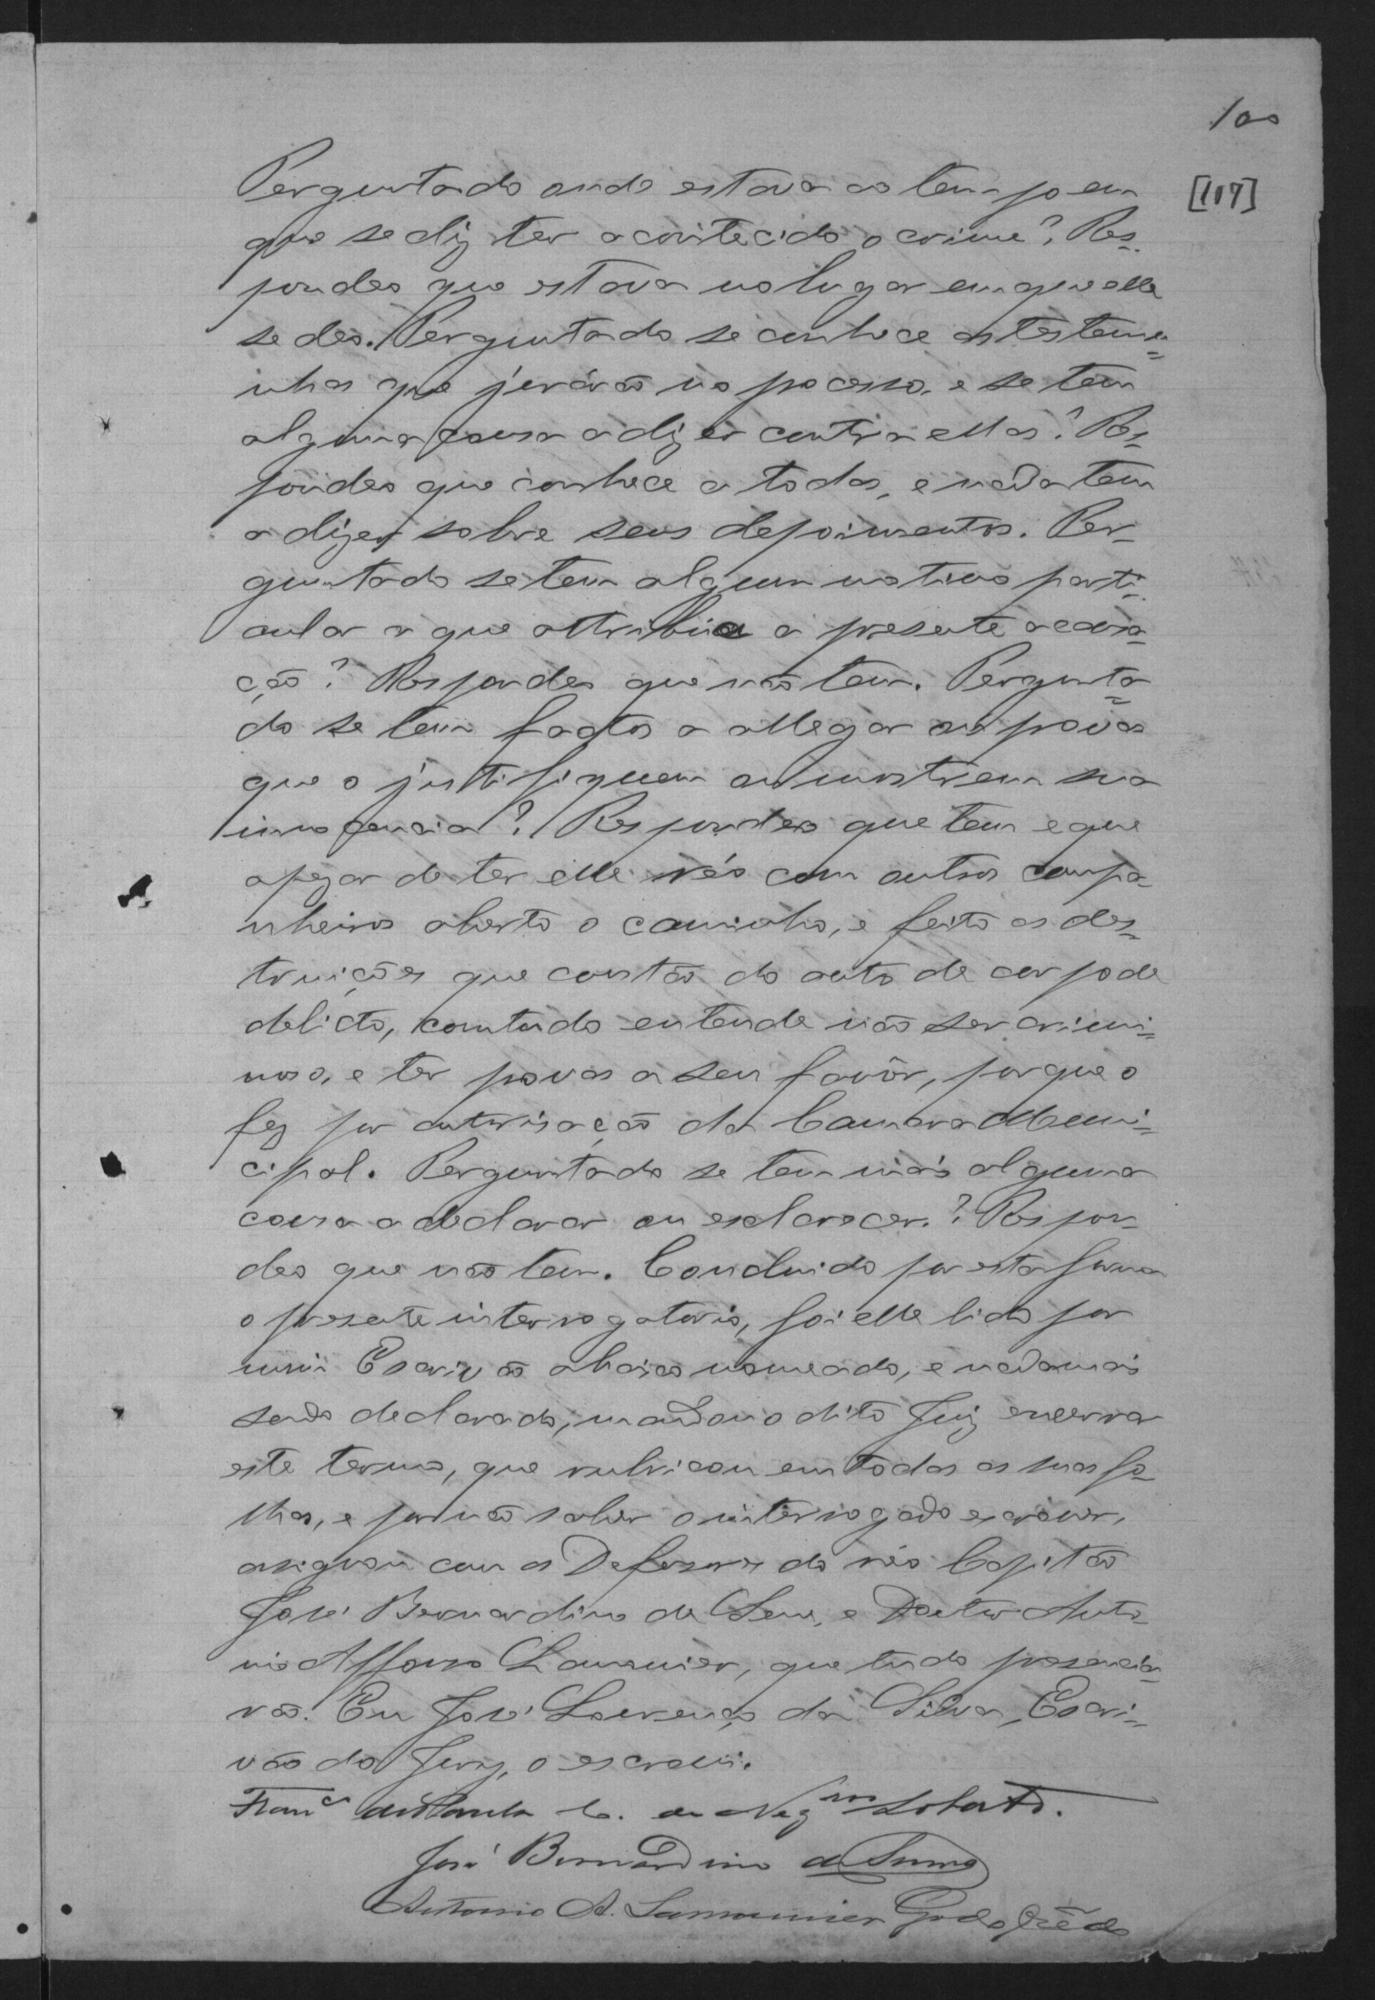 100
[117]
Perguntado onde estava ao tempo em
que se diz ter acontecido o crime? Res-
pondeo que estava no lugar em que elle
se deo. Perguntado se conhece as testemu=
nhas que jurárão no processo, e se tem
alguma cousa a dizer contra ellas? Res=
pondeo que conhece a todas, e nada tem
a dizer sobre seus depoimentos. Per-
guntado se tem algum motivo parti-
cular a que attribúa a presente accusa=
ção? Respondeo que não tem. Pergunta=
do se tem factos a allegar ou provas
que o justifiquem ou mostrem sua
innocencia? Respondeo que tem e que
apezar de ter elle réo com outros compa-
nheiros aberto o caminho, e feito as des=
truições que constão do auto de corpo de
delicto, comtudo entende não ser crimi=
noso, e ter provas a seu favôr, porque o
fez por autorisação da Camara Muni=
cipal. Perguntado se tem mais alguma
cousa a declarar ou esclarecer.? Respon-
deo que não tem. Concluido por esta forma
o presente interrogatorio, foi elle lido por
mim Escrivão abaixo nomeado, e nada mais
sendo declarado, mandou o dito Juiz encerrar
este termo, que rubricou em todas as suas fo-
lhas, e por não saber o interrogado escrever,
assignou com os Defensores do réo Capitão
José Bernardino de Sene, e Doutor Anto-
nio Affonso Lamounier, que tudo presenciá-
rão. Eu José Lourenço da Silva, Escri-
vão do Jury, o escrevi.
Franco de Paula C. de Neg.ros Lobato.
José Bernardino de Senne
Antonio A. Lamounier Godofrêdo